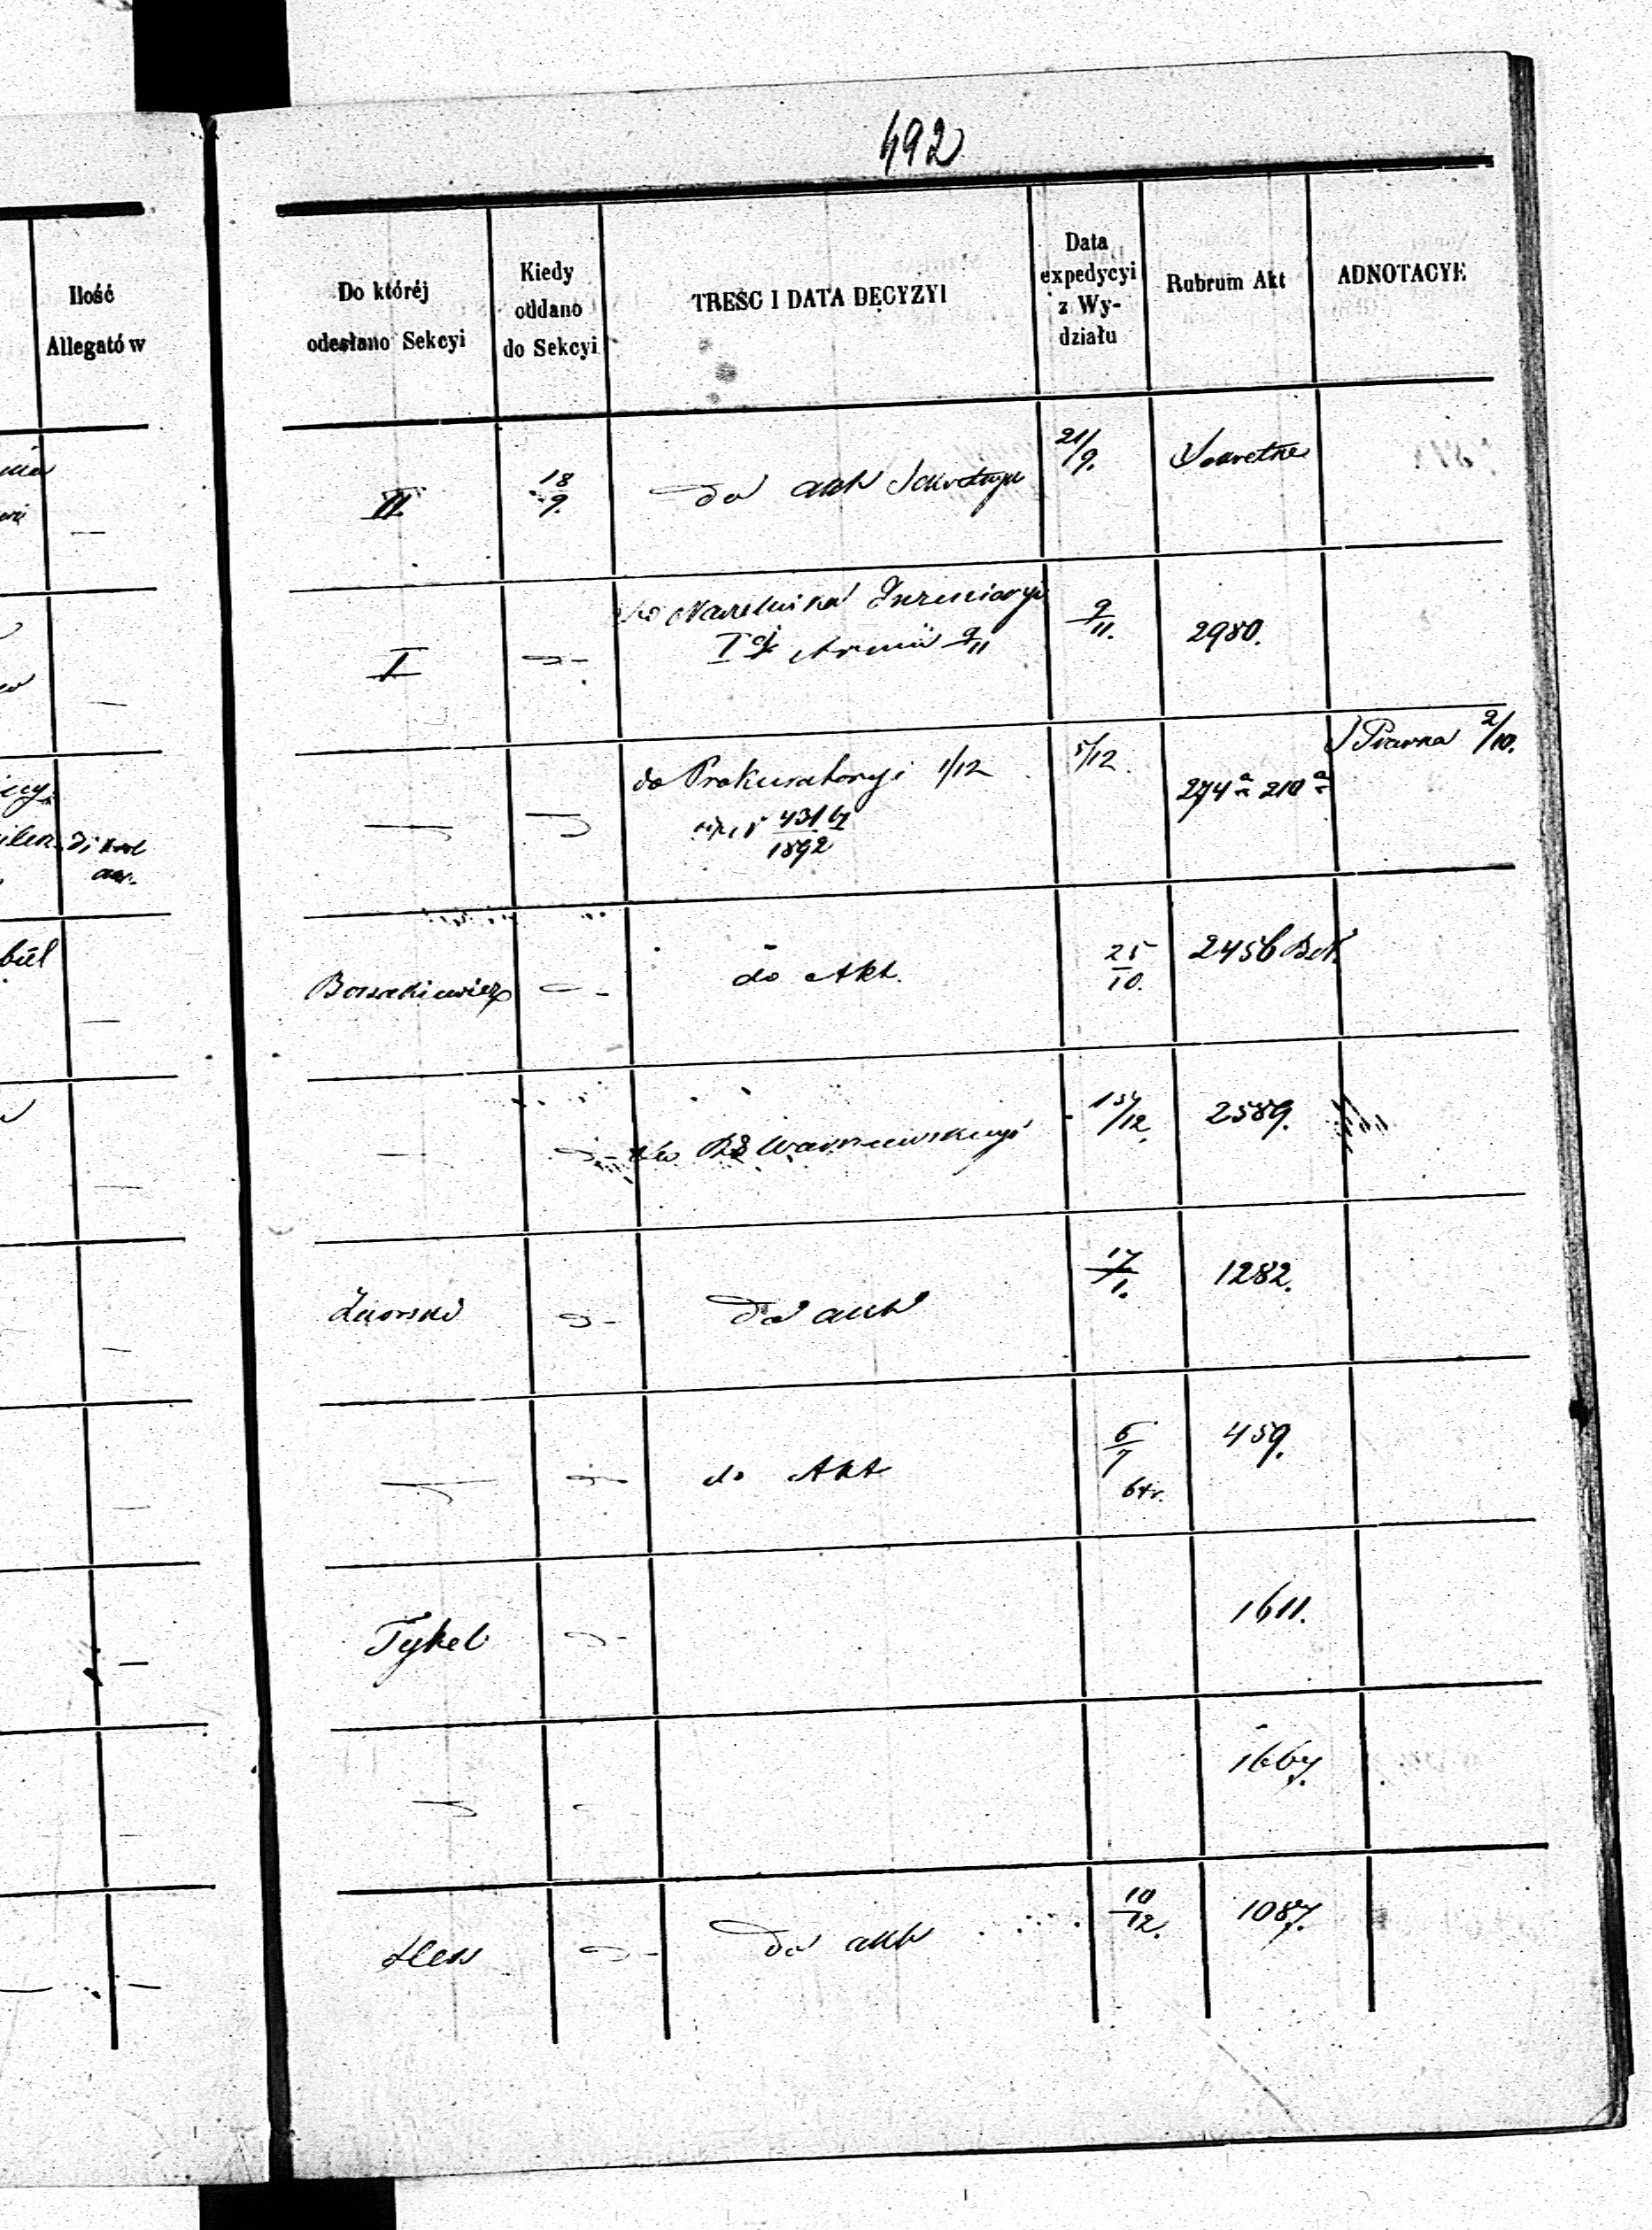 492
Ilość
Allegatów
Do któréj
odesłano Sekcyi
Kiedy
oddano
do Sekcyi
TREŚC I DATA DECYZYI
Data
expedycyi
z Wy-
działu
Rubrum Akt
ADNOTACYE
II
18/9.
do akt Sekretnych
21/9.
Sekretne
I
do Naczelnika Inżenieryi
Iej Armii 9/11
9/11.
2980.
do Prokuratoryi 1/12
431
1892
5/12
274 a 210 a
Prawna 2/10.
do Akt.
25/10.
2456
do Warszawskiego
/12.
2589.
do akt
17/1.
1282.
do Akt
6/7
64 r.
459.
Tykel
1611.
1667.
Hess
do akt
10/12.
1087.